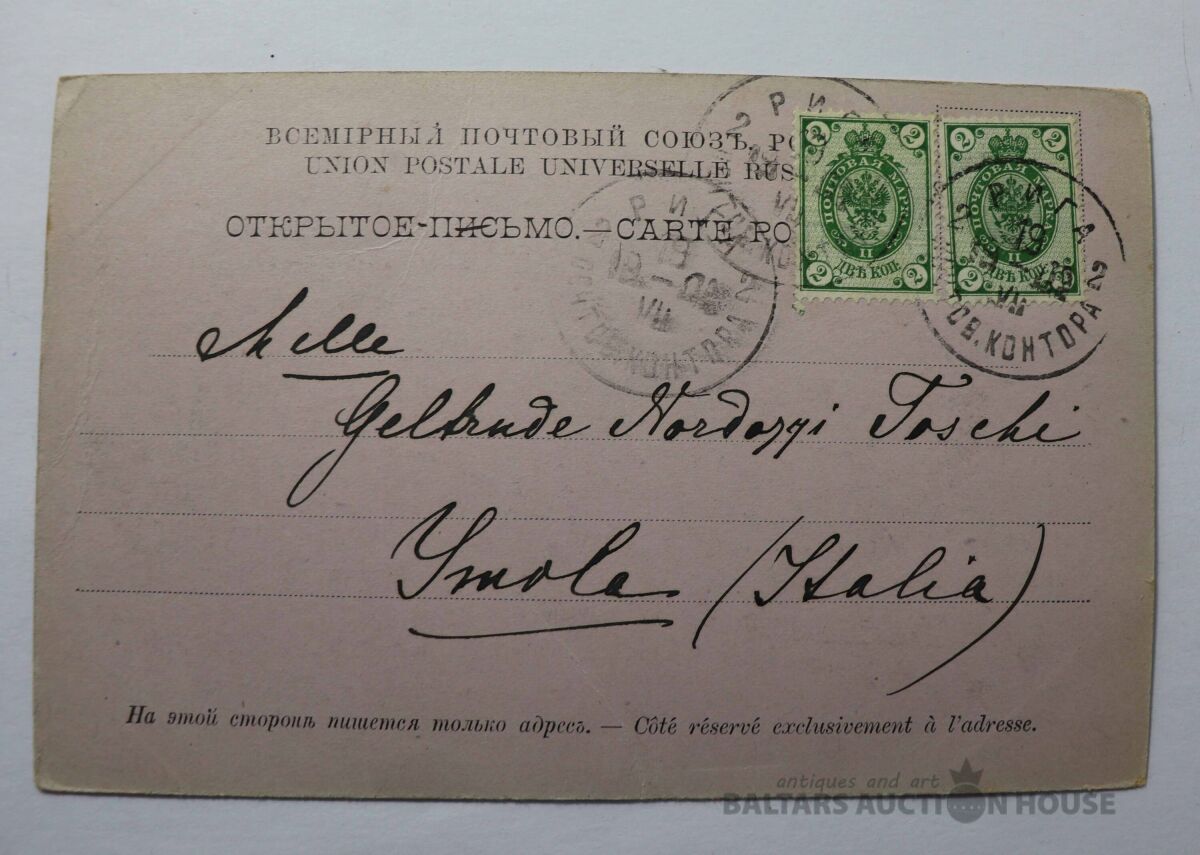 ВСЕМІРНЫЙ ПОЧТОВЫЙ СОЮЗЪ.
UNION POSTALE UNIVERSELLE RUS
ОТКРЫТОЕ-ПИСЬМО.—CARTE PO
2 РИ
2
2
ПОЧТОВАЯ МАРКА
II
2
2
ДВѢ КОП.
2
2
ПОЧТОВАЯ МАРКА
II
2
ДВѢ КОП.
РИ
19
VII
КОНТОРА 2
2 РИГА
19
VII
ПОЧТОВ. КОНТОРА 2
Melle
Geltrude Toschi
Ymola (Italia)
На этой сторонѣ пишется только адресъ. — Côté réservé exclusivement à l'adresse.
antiques and art
BALTARS AUCTION HOUSE